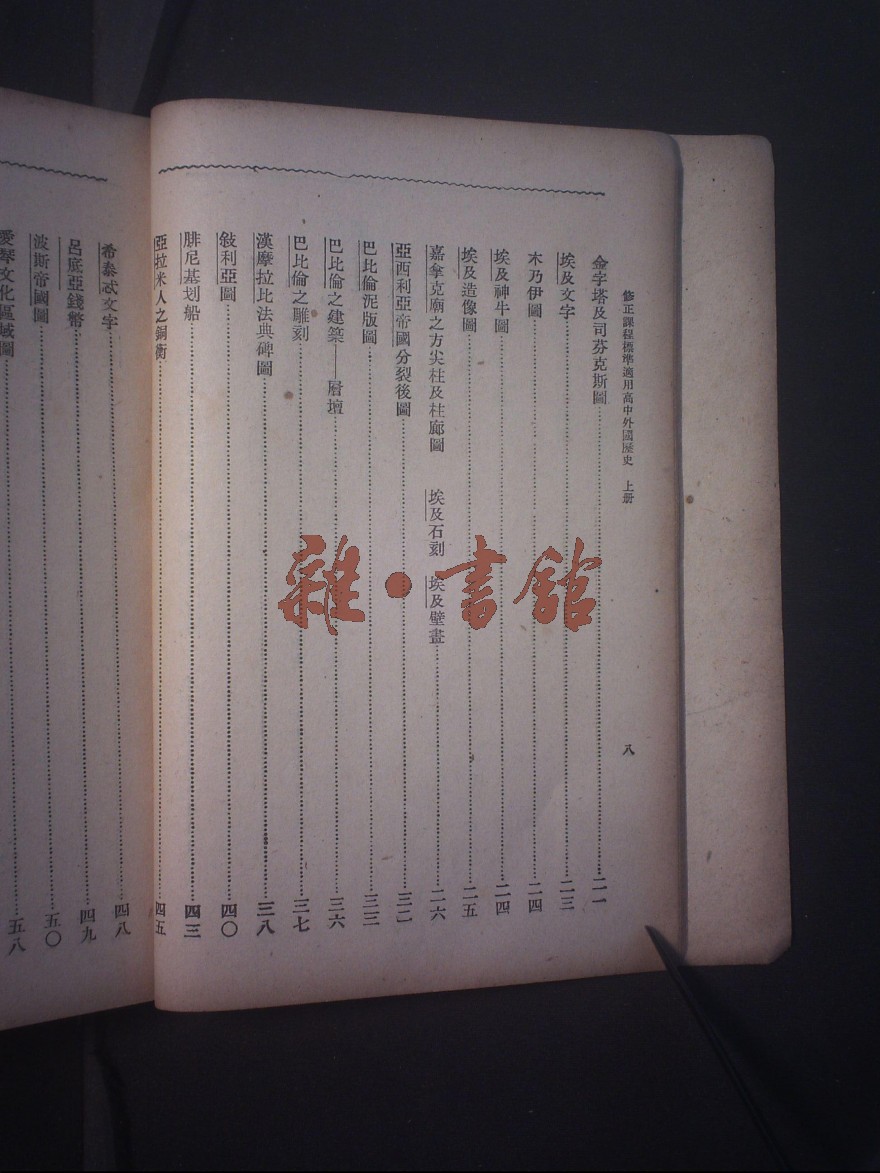 修正課程標準適用高中外國歷史　上册
八
金字塔及司芬克斯圖……二一
埃及文字……二三
木乃伊圖……二四
埃及神牛圖……二四
埃及造像圖……二五
嘉拿克廟之方尖柱及柱廊圖　埃及石刻　埃及壁畫……二六
亞西利亞帝國分裂後圖……三二
巴比倫泥版圖……三三
巴比倫之建築——層壇……三六
巴比倫之雕刻……三七
漢摩拉比法典碑圖……三八
敍利亞圖……四〇
腓尼基划船……四三
亞拉米人之銅衡……四五
希泰忒文字……四八
呂底亞錢幣……四九
波斯帝國圖……五〇
愛琴文化區域圖……五八
雜·書館